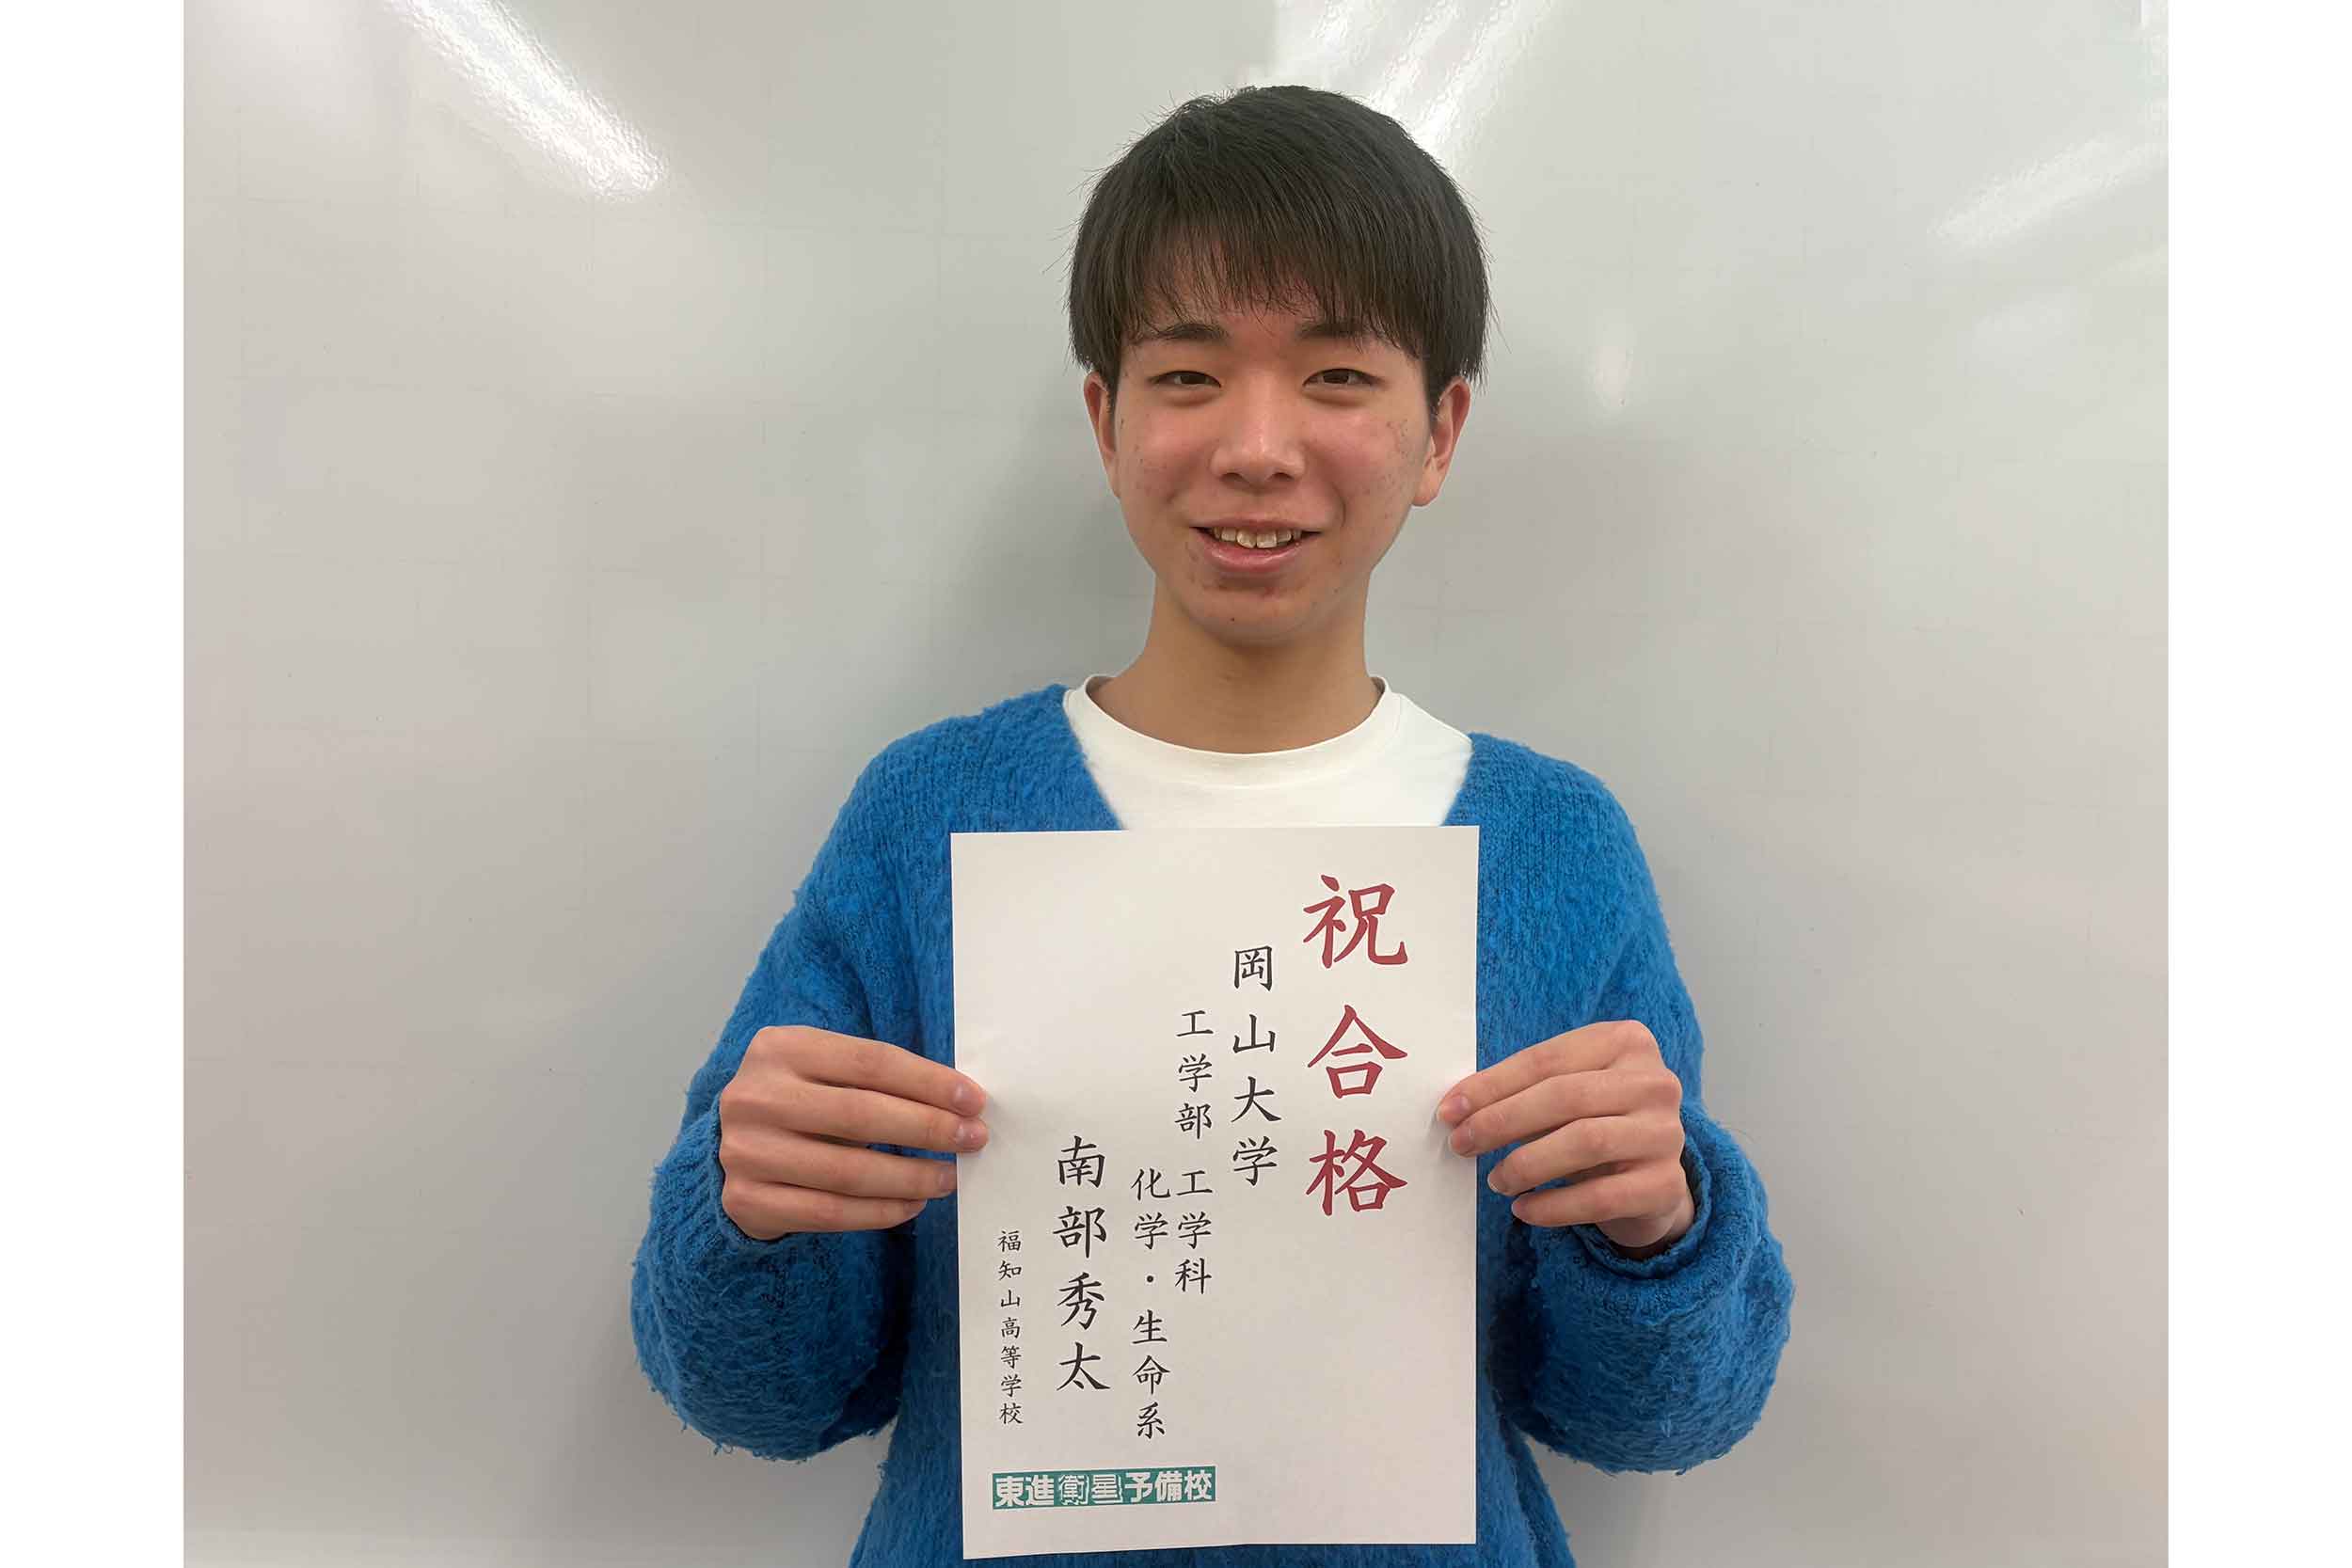 祝合格
岡山大学
工学部 工学科
化学・生命系
南部秀太
福知山高等学校
東進衛星予備校